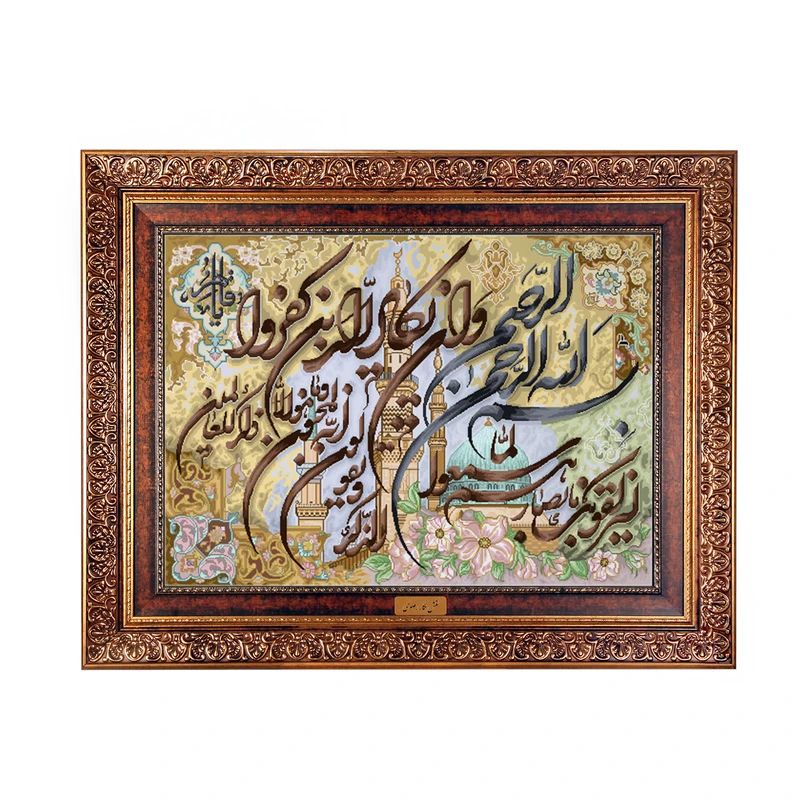 بسم الله الرحمن الرحیم
وان یکاد الذین کفروا
لیزلقونک بابصارهم
لما سمعوا الذکر
ویقولون
انه لمجنون
وما هو الا
ذکر للعالمین
یا فاطمة الزهرا